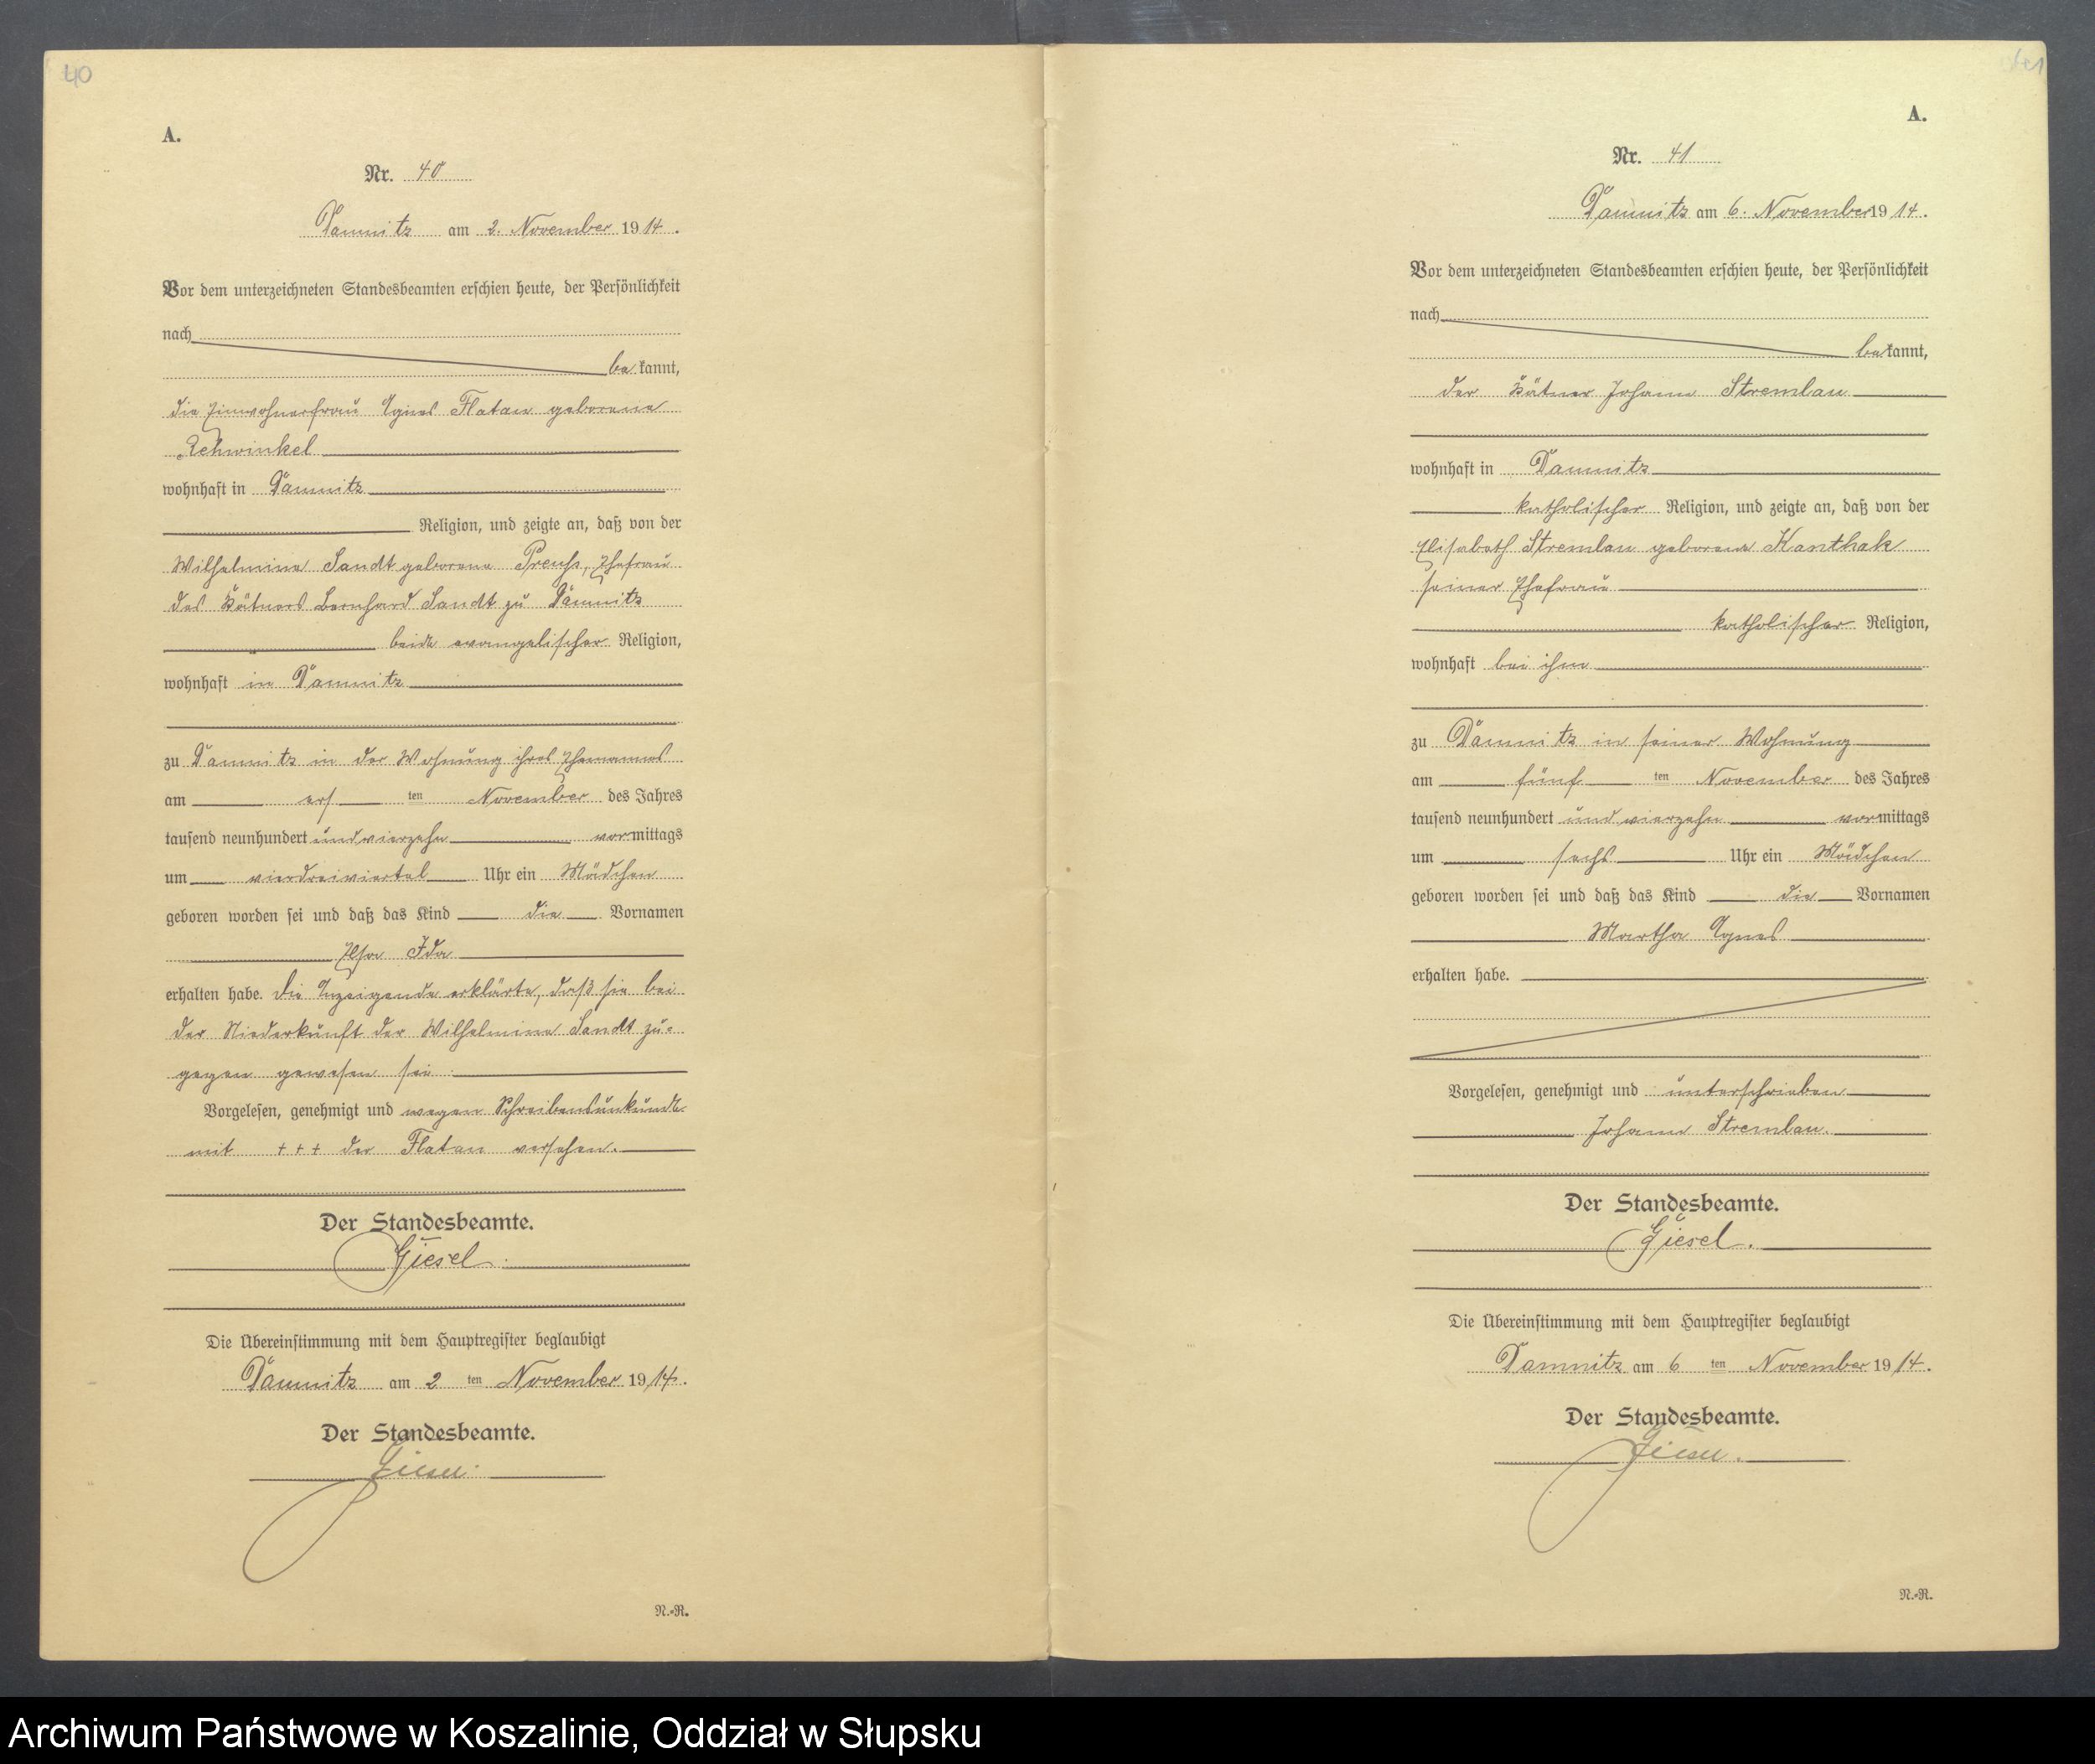 40
A.
Nr. 40
Damnitz am 2. November 1914.
Vor dem unterzeichneten Standesbeamten erschien heute, der Persönlichkeit
nach
bekannt,
die Einwohnerfrau Agnes Flatau geborene
Rehwinkel
wohnhaft in Damnitz
Religion, und zeigte an, daß von der
Wilhelmine Sandt geborene Preuß, Ehefrau
des Kätners Bernhard Sandt zu Damnitz
beide evangelischer Religion,
wohnhaft in Damnitz
zu Damnitz in der Wohnung ihres Ehemannes
am ersten November des Jahres
tausend neunhundert und vierzehn vormittags
um vierdreiviertel Uhr ein Mädchen
geboren worden sei und daß das Kind die Vornamen
Ida
erhalten habe. Die Anzeigende erklärte, daß sie bei
der Niederkunft der Wilhelmine Sandt zu=
gegen gewesen sei.
Vorgelesen, genehmigt und wegen Schreibensunkunde
mit +++ der Flatau versehen.
Der Standesbeamte.
Giesel.
Die Übereinstimmung mit dem Hauptregister beglaubigt
Damnitz am 2 ten November 1914.
Der Standesbeamte.
Giesel.
N.-R.
41
A.
Nr. 41
Damnitz am 6. November 1914.
Vor dem unterzeichneten Standesbeamten erschien heute, der Persönlichkeit
nach
bekannt,
der Kätner Johann Stremlau
wohnhaft in Damnitz
katholischer Religion, und zeigte an, daß von der
Elisabeth Stremlau geborene Kanthak
seiner Ehefrau
katholischer Religion,
wohnhaft bei ihm
zu Damnitz in seiner Wohnung
am fünften November des Jahres
tausend neunhundert und vierzehn vormittags
um sechs Uhr ein Mädchen
geboren worden sei und daß das Kind die Vornamen
Martha Agnes
erhalten habe.
Vorgelesen, genehmigt und unterschrieben
Johann Stremlau.
Der Standesbeamte.
Giesel.
Die Übereinstimmung mit dem Hauptregister beglaubigt
Damnitz am 6 ten November 1914.
Der Standesbeamte.
Giesel.
N.-R.
Archiwum Państwowe w Koszalinie, Oddział w Słupsku